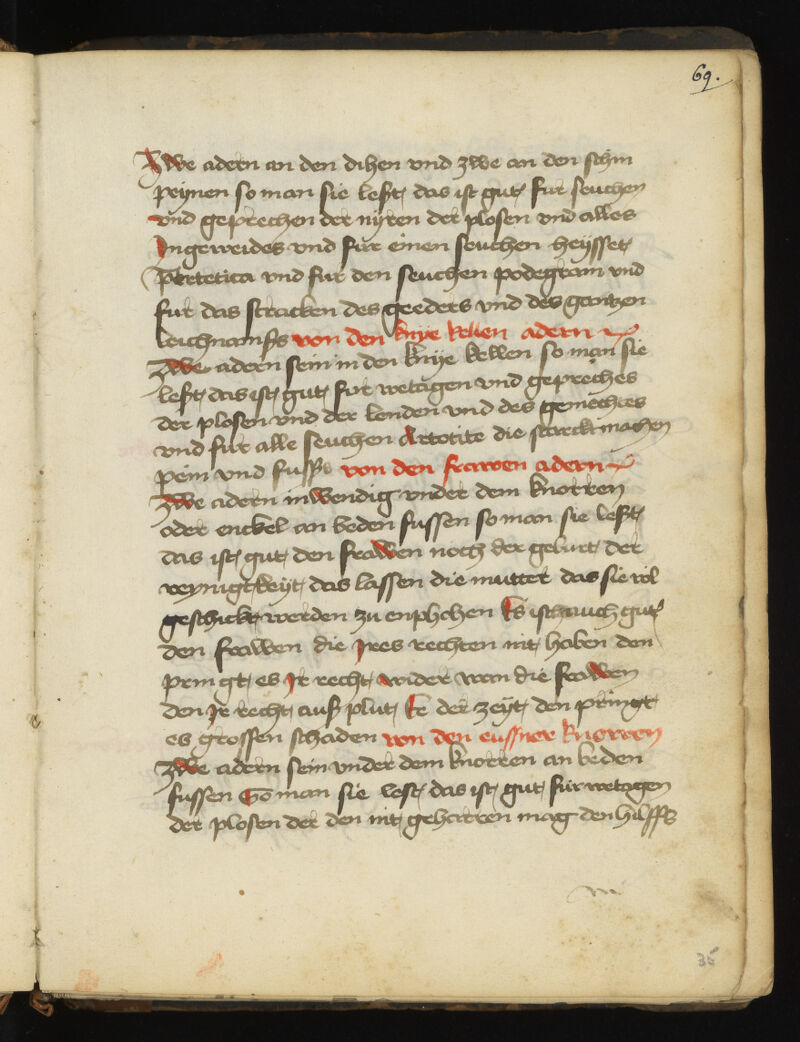 69.
Zwe adern an den dihen vnd zwe an den schin
peynen so man sie leßt das ist gut fur seuchen
vnd geprechen der nyren der plosen vnd alles
Ingeweides vnd fur einen seuchen heysset
Pertetica vnd fur den seuchen podegram vnd
fur das stracken des geeders vnd des gantzen
leichnamßs von den knye kellen adern
Zwe adern sein in den knye kellen so man sie
leßt das ist gut fur wetagen vnd gepreches
der plosen vnd der lenden vnd des gemechtes
vnd fur alle seuchen Artotite die starckt machen
pein vnd fußs von den frawen adern
Zwe adern inwendig vnder dem knorren
oder enckel an beden fussen so man sie leßt
das ist gut den frawen noch der geburt der
reynigtkeyt das lassen die mutter das sie wol
geschickt werden zu enphohen Es ist auch gut
den frawen die Ires rechten nit haben den
pringt es Ir recht wider wan die frawen
den Ir recht auß plut Ee der zeyt den pringt
es grossen schaden von den eussner knorren
Zwe adern sein vnder dem knorren an beden
fussen So man sie lest das ist gut fur wetagen
der plosen der den nit geharren mag den hilffs
35